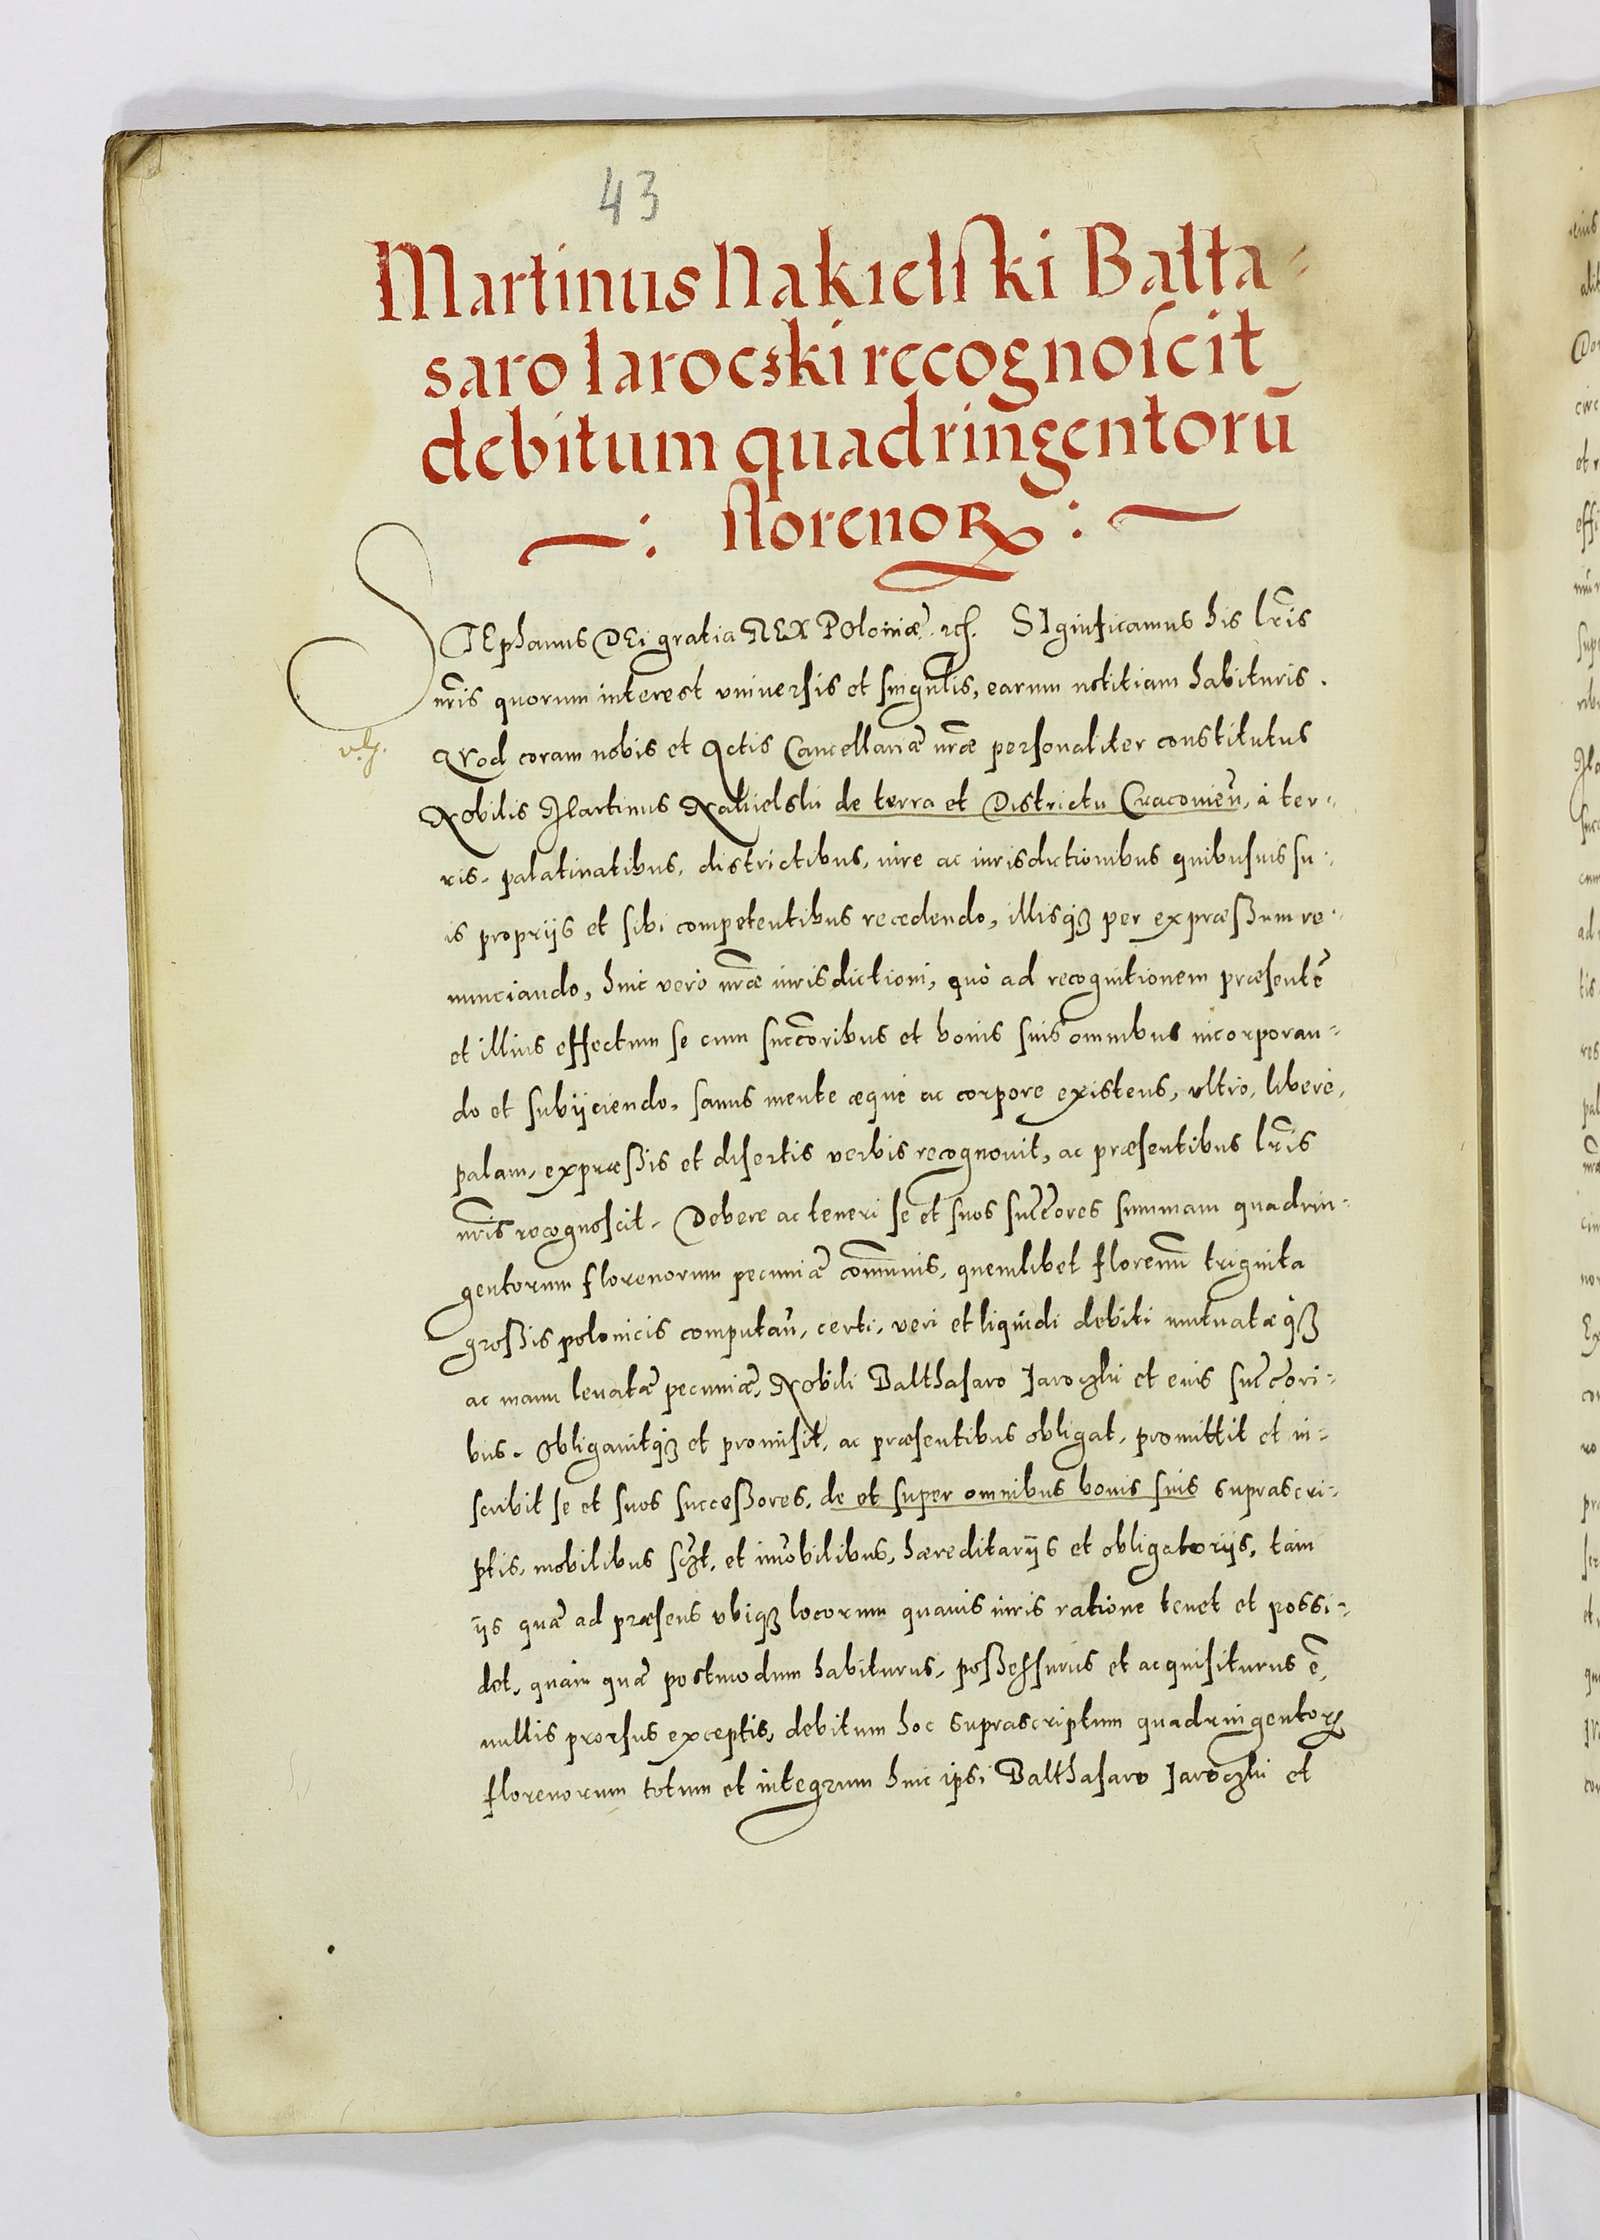 43
Martinus Nakielſki Balta-
saro Iarocski recognoſcit
debitum quadringentorũ
florenoꝝ
STEphanus DEi gratia REX POloniæ. etc. SIgnificamus his lr̃is
nr̃is quorum interest vniuersis et singulis, earum notitiam habituris.
QVod coram nobis et Actis Cancellariæ nr̃æ personaliter constitutus
Nobilis Martinus Nakielski de terra et Districtu Cracovień, à ter-
ris, palatinatibus, districtibus, iure ac iurisdictionibus quibusuis su-
is proprijs et sibi competentibus recedendo, illisqꝫ per expræßum re-
nunciando, huic verò nr̃æ iurisdictioni, quò ad recognitionem præsentẽ
et illius effectum se cum succ̃oribus et bonis suis omnibus incorporan-
do et subijciendo, sanus mente æquè ac corpore existens, vltrò, liberè,
palam, expræßis et disertis verbis recognouit, ac præsentibus lr̃is
nr̃is recognoscit. Debere ac teneri se et suos succ̃ores summam quadrin-
gentorum florenorum pecuniæ com̃unis, quemlibet florenum triginta
großis polonicis computań, certi, veri et liquidi debiti mutuatæqꝫ
ac manu leuatæ pecuniæ, Nobili Balthasaro Jaroczki et eius succ̃ori-
bus. Obligauitqꝫ et promisit, ac præsentibus obligat, promittit et in-
scribit se et suos succeßores, de et super omnibus bonis suis suprascri-
ptis, mobilibus sczt, et im̃obilibus, hæreditarijs et obligatorijs, tam
ijs quæ ad præsens vbiqꝫ locorum quauis iuris ratione tenet et possi-
det, quàm quæ postmodum habiturus, poßessurus et acquisiturus ẽ,
nullis prorsus exceptis, debitum hoc suprascriptum quadringentoꝝ
florenorum totum et integrum huic ipsi Balthasaro Jaroczki et